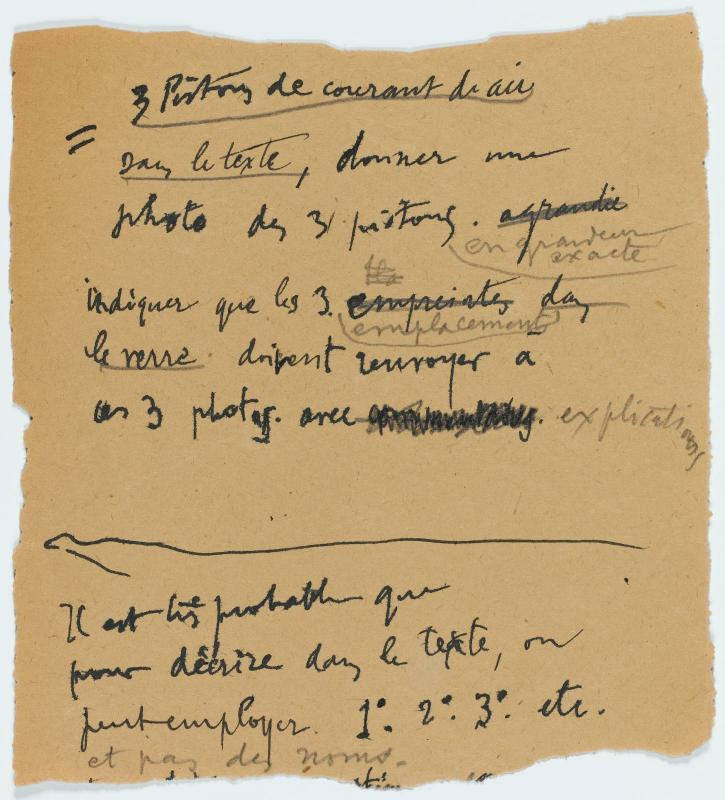 3 Pistons de courant d'air
= dans le texte, donner une
photo des 3 pistons. agrandie
en grandeur
exacte
indiquer que les 3 empreintes dans
emplacements
le verre doivent renvoyer à
ces 3 photos. avec explications
Il est très probable que
pour décrire dans le texte, on
peut employer 1º. 2º. 3º. etc.
et pas des noms.